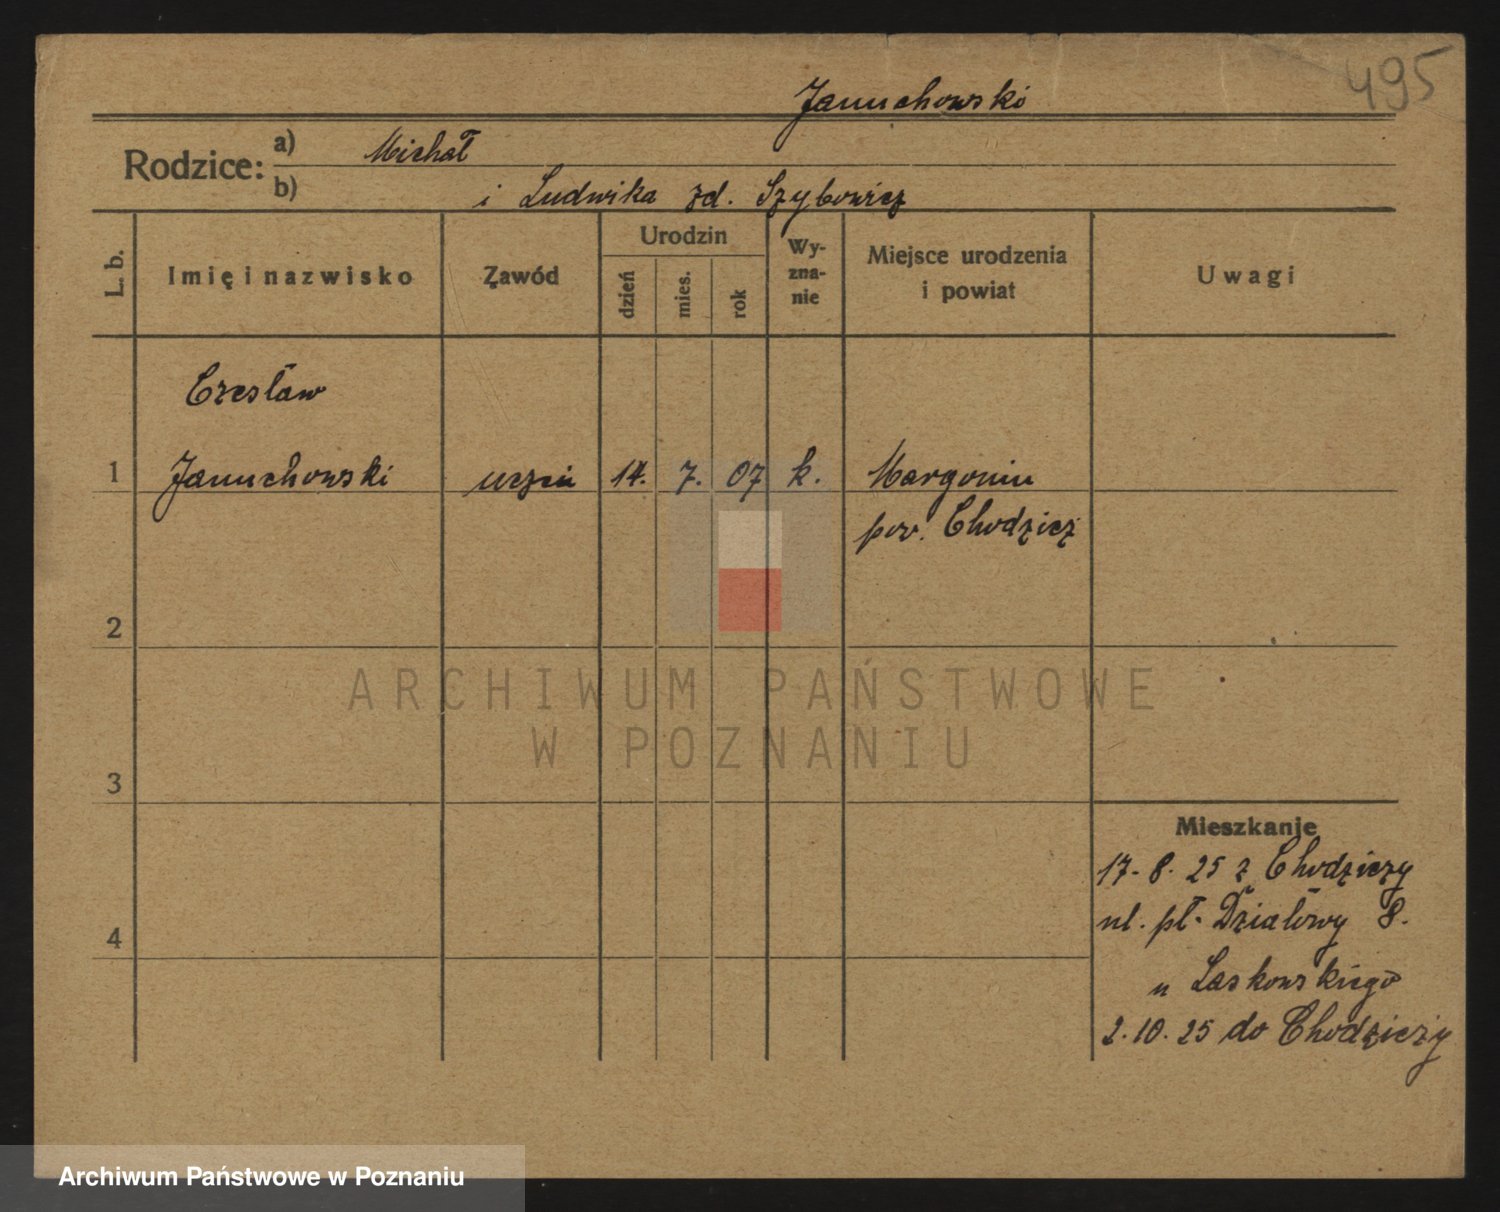 495
Januchowski
Rodzice: a) Michał
b) i Ludwika zd. Szybowicz
L. b.
Imię i nazwisko
Zawód
Urodzin
dzień
mies.
rok
Wy-
zna-
nie
Miejsce urodzenia
i powiat
Uwagi
Czesław
1 Januchowski uczeń 14. 7. 07 k. Margonin
pow. Chodzież
2
3
4
Mieszkanie
17. 8. 25 z Chodzieży
ul. pł. Działowy 8.
u Laskowskiego
2. 10. 25 do Chodzieży
ARCHIWUM PAŃSTWOWE
W POZNANIU
Archiwum Państwowe w Poznaniu